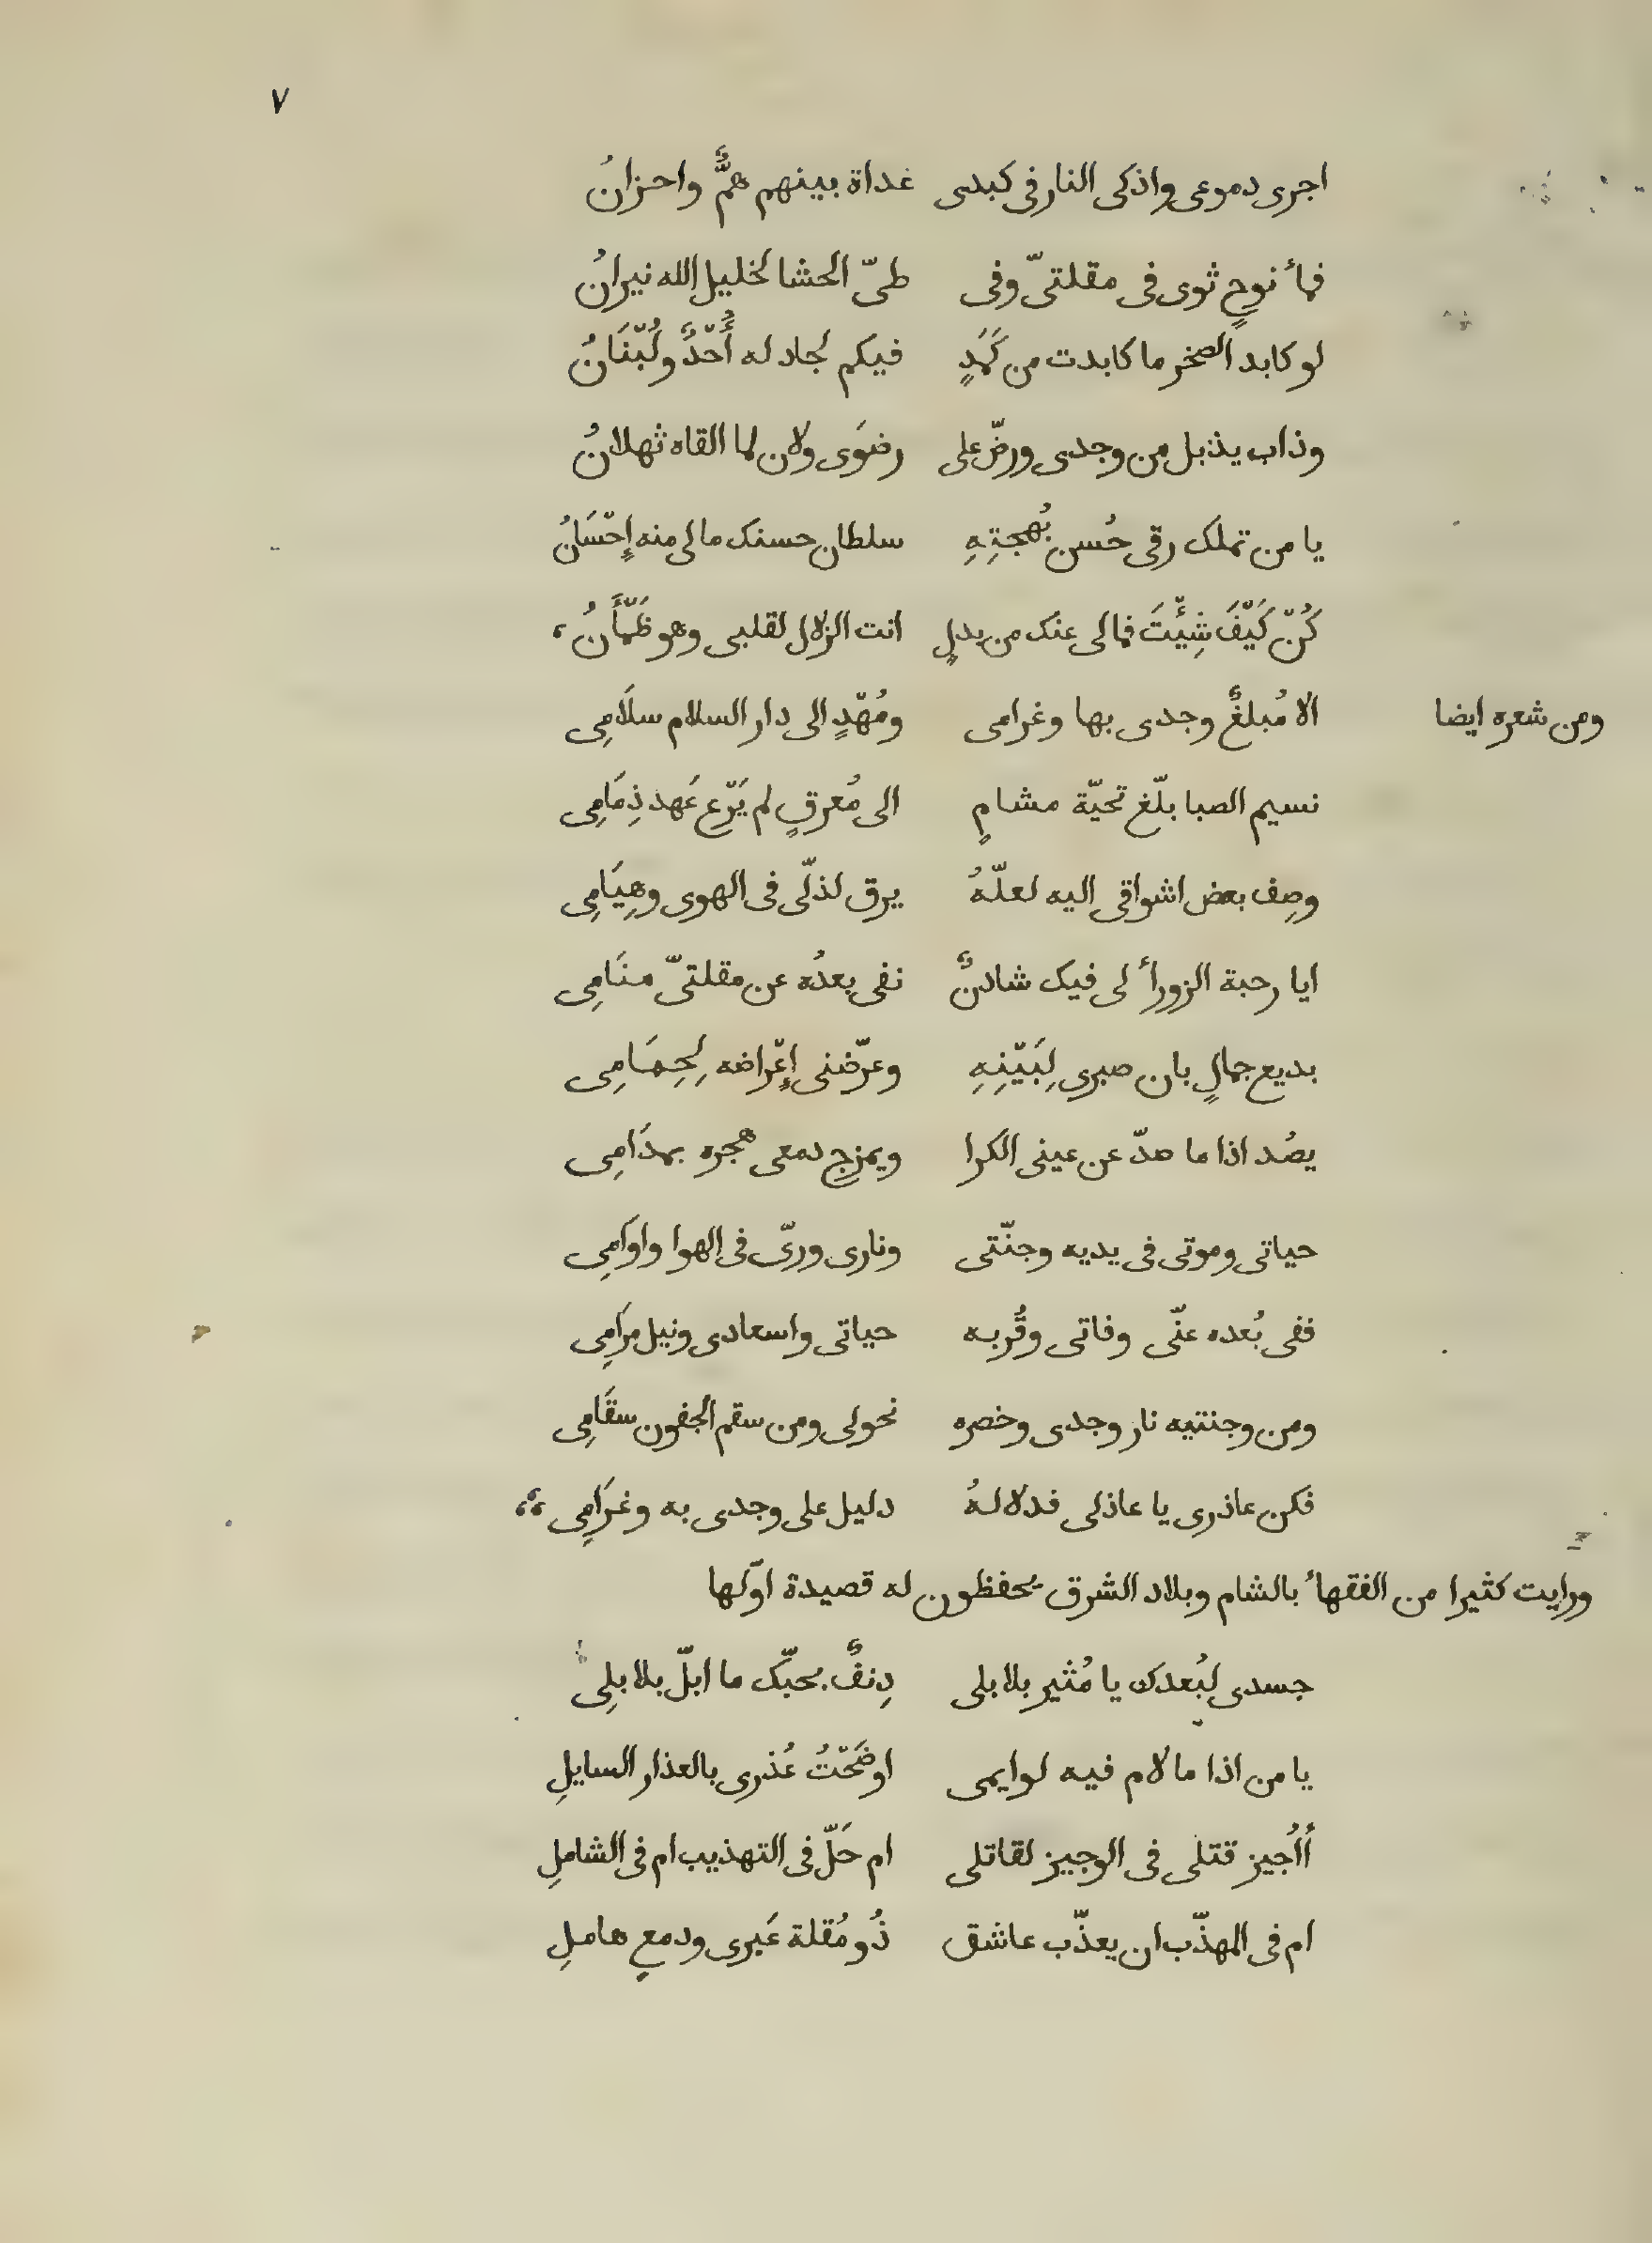 ٧
اجرى دموعى واذكى النار فى كبدى غداة بينهم همٌّ واحزانُ
فمأ نوحٍ ثوى فى مقلتىّ وفى طىّ الحشا لخليل الله نيرانُ
لو كابد الصخر ما كابدت من كَمَدٍ فيكم لجاد له أُحْدٌ ولُبْنَانُ
وذاب يذبل من وجدى ورضّ على رضوَى ولان لما القاه ثهلانُ
يا من تملك رقى حُسن بُهجتِهِ سلطان حسنك ما لى منه إِحْسَانُ
كُنْ كَيْفَ شِيْتَ فمالى عنك من بدلٍ انت الزلال لقلبى وهو ظَمْأَنُ،
ومن شعره ايضا الا مُبلغٌ وجدى بها وغرامى ومُهْدٍ الى دار السلام سلَامِى
نسيم الصبا بلّغ تحيّة مشامٍ الى مُعرقٍ لم يَرْعِ عَهد ذِمَامِى
وصِف بعض اشواقى اليه لعلّهُ يرق لذلّى فى الهوى وهِيَامِى
ايا رحبة الزورأ لى فيك شادنٌ نفى بعدُه عن مقلتىّ منَامِى
بديع جمالٍ بان صبرى لِبَيْنِهِ وعرّضنى إِعْراضه لِحِمَامِى
يصُد اذا ما صدّ عن عينى الكرا ويمزج دمعى هجره بمدَامِى
حياتى وموتى فى يديه وجنّتى ونارى ورىّ فى الهوا واوَامِى
ففى بُعده عنّى وفاتى وقُربه حياتى واسعادى ونيل مرَامِى
ومن وجنتيه نار وجدى وخصره نحولى ومن سقم الجفون سقَامِى
فكن عاذرى يا عاذلى فدلالهُ دليل على وجدى به وغرَامِى ؛؛
ورايت كثيرا من الفقهأ بالشام وبلاد الشرق يحفظون له قصيدة اوّلها
جسدى لبُعدك يا مُثير بلابلى دِنفٌ بحبّك ما ابلّ بلابلِى
يا من اذا ما لام فيه لوايمى اوضَحْتُ عُذرى بالعذار السايلِ
أاُجيز قتلى فى الوجيز لقاتلى ام حَلّ فى التهذيب ام فى الشاملِ
ام فى المهذّب ان يعذّب عاشق ذُو مُقلة عَبرى ودمعٍ هاملِ